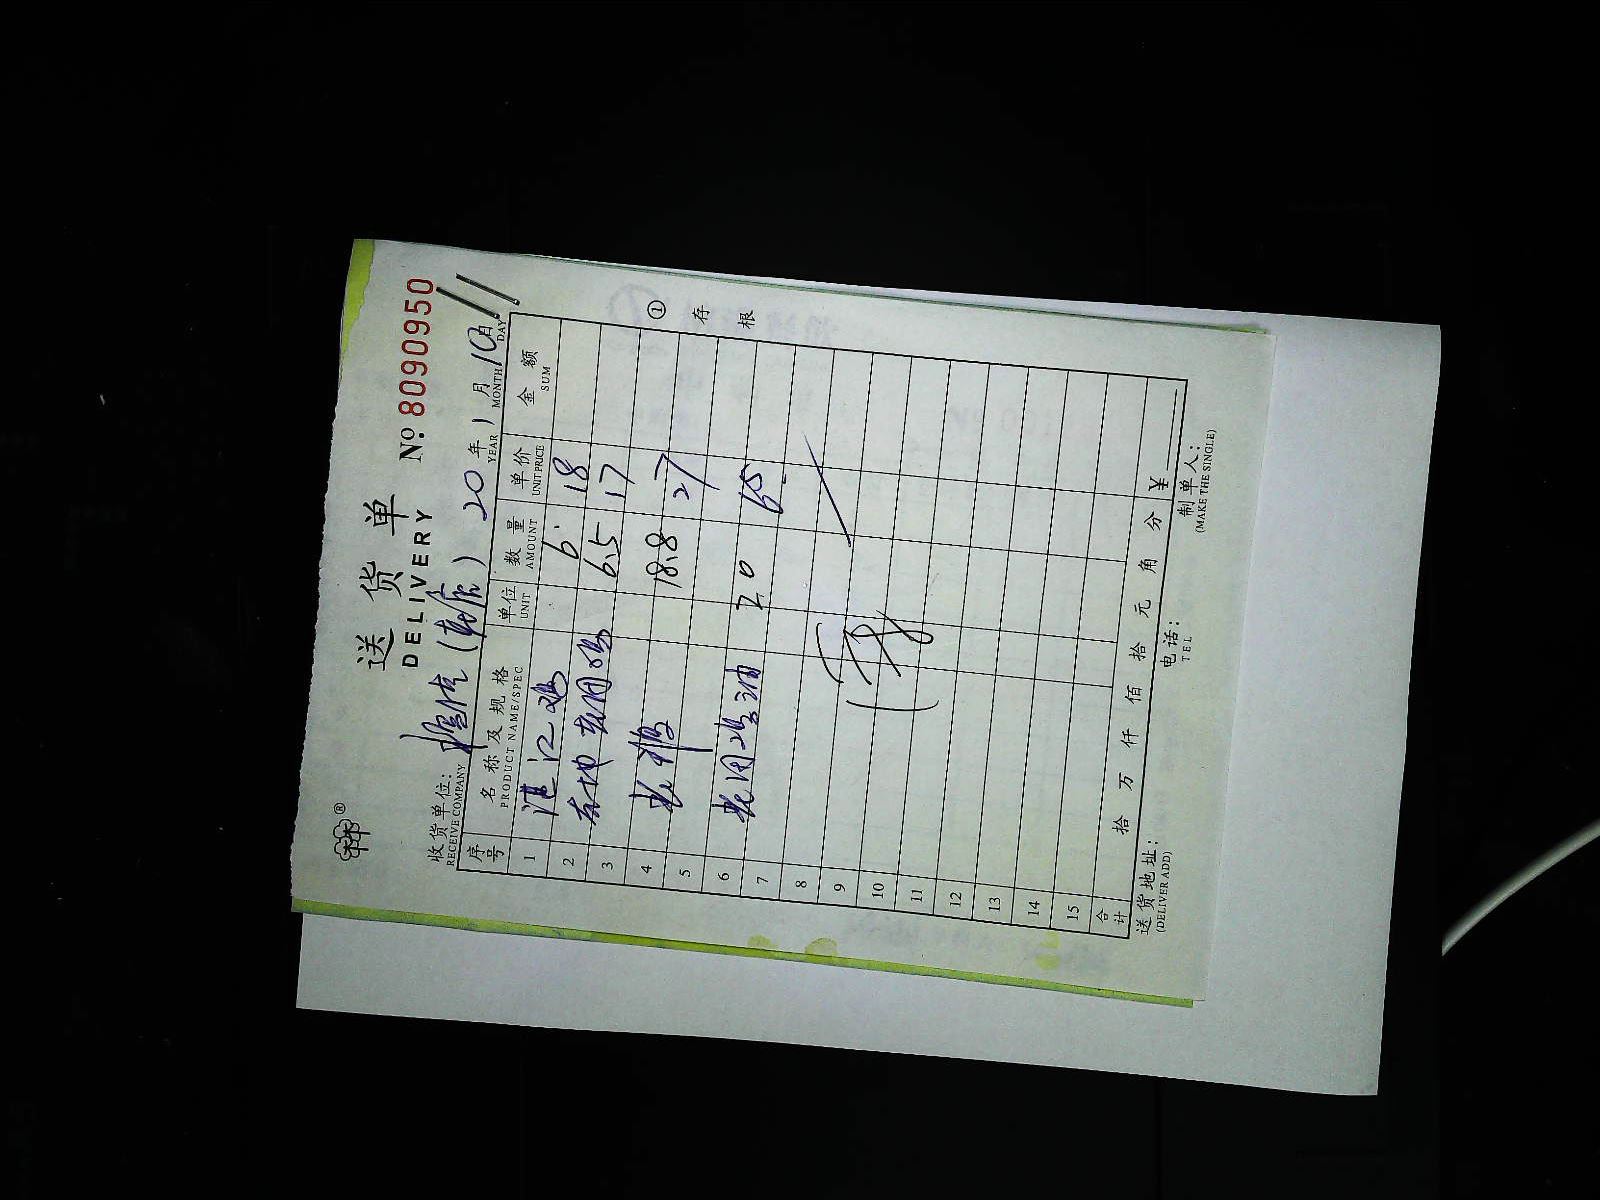 送货单
DELIVERY
№ 8090950
收货单位:
RECEIVE COMPANY
20 年 1 月 10 日
YEAR MONTH DAY
序号 名称及规格 单位 数量 单价 金额
PRODUCT NAME/SPEC UNIT AMOUNT UNIT PRICE SUM
1 湛江鸡 6 18
2 本地 鸡 6.5 17
3
4 18.8 27
5
6 鸡油 20
7
8
9
10
11
12
13
14
15
合计 拾 万 仟 佰 拾 元 角 分 ¥
送货地址: 电话: 制单人:
(DELIVER ADD) TEL (MAKE THE SINGLE)
① 存根